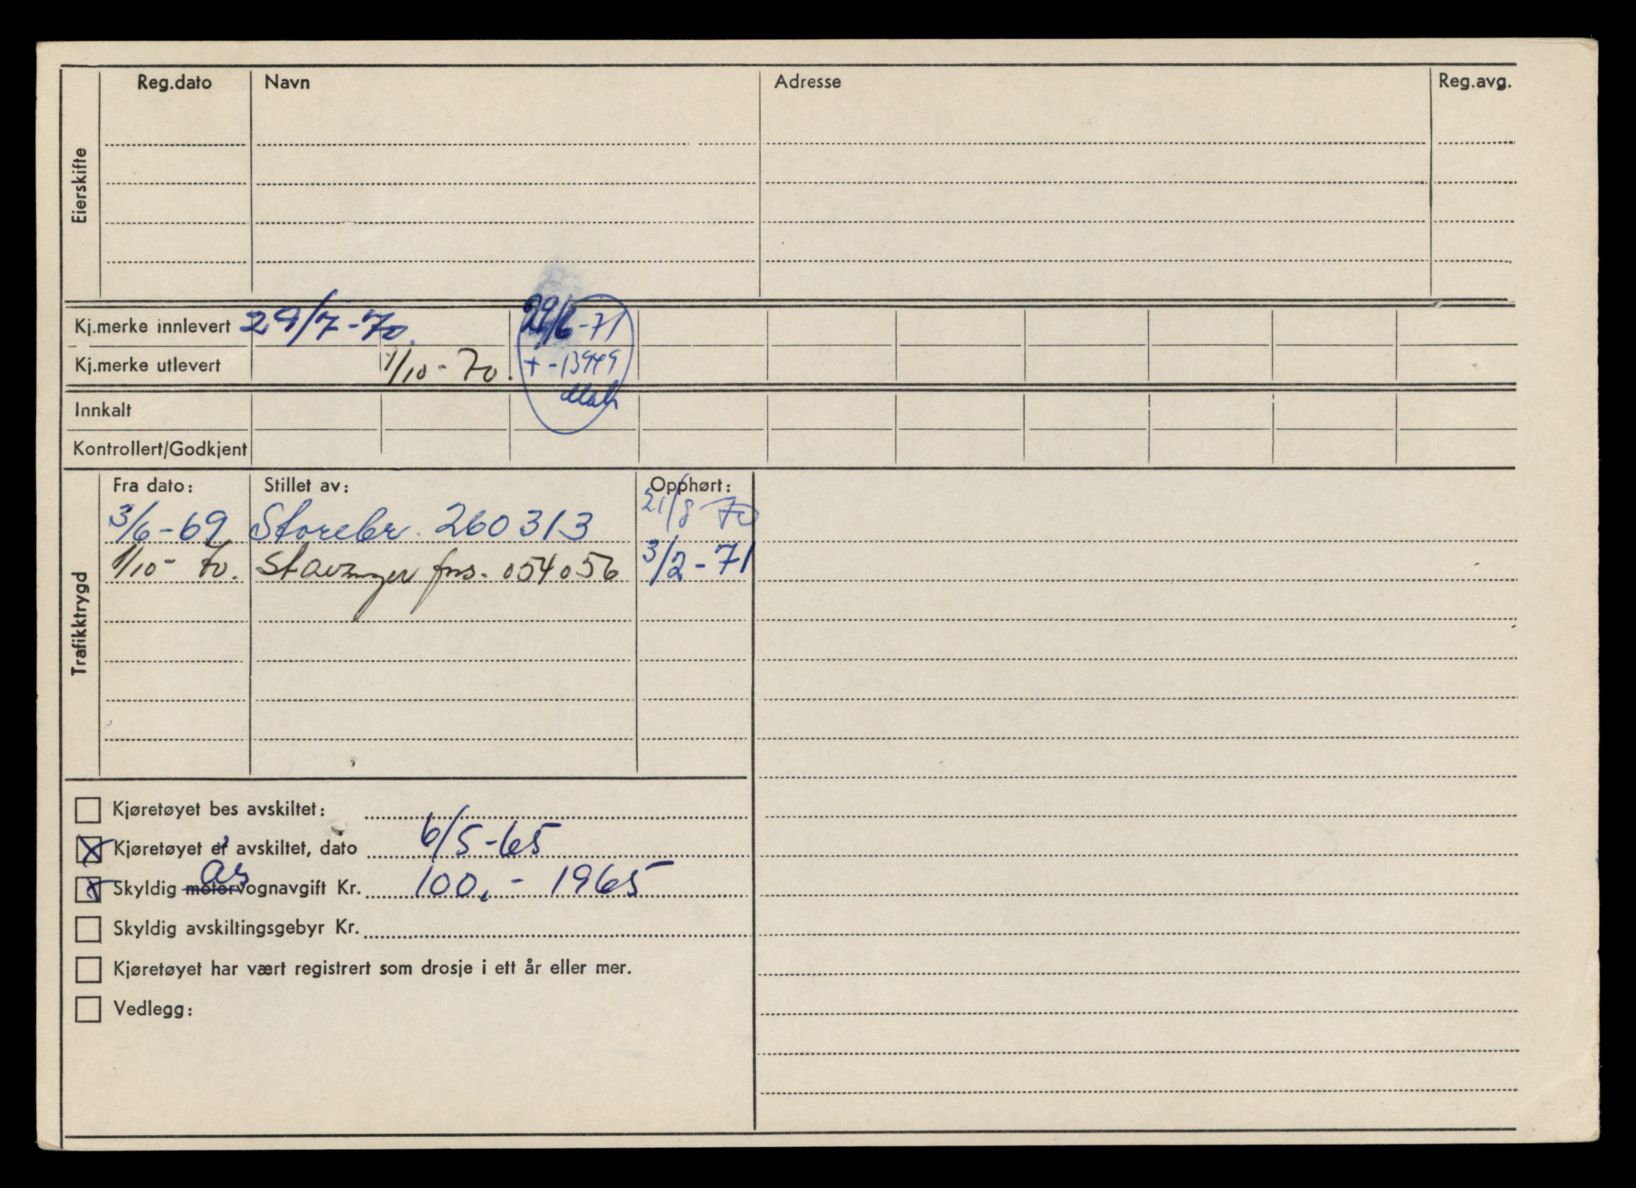 Reg.dato Navn Adresse Reg.avg.
Eierskifte
Kj.merke innlevert 29/7-70. 29/6-71
Kj.merke utlevert 1/10-70. + -13949
Innkalt
Kontrollert/Godkjent
Trafikktrygd
Fra dato: Stillet av: Opphørt:
3/6-69 Storebr. 260313 21/8-70
1/10-70. Stavanger fors. 054056 3/2-71
Kjøretøyet bes avskiltet:
Kjøretøyet er avskiltet, dato 6/5-65
as
Skyldig motorvognavgift Kr. 100,- 1965
Skyldig avskiltingsgebyr Kr.
Kjøretøyet har vært registrert som drosje i ett år eller mer.
Vedlegg: